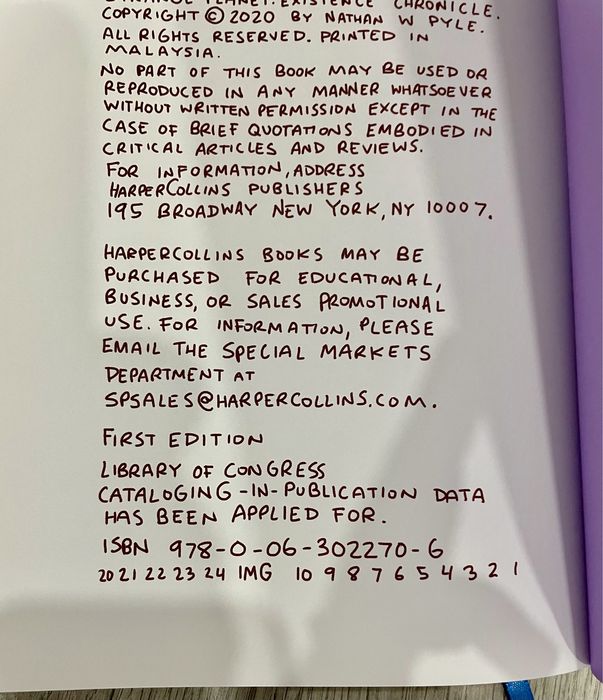 PLANET: EXISTENCE CHRONICLE.
COPYRIGHT © 2020 BY NATHAN W PYLE.
ALL RIGHTS RESERVED. PRINTED IN
MALAYSIA.
NO PART OF THIS BOOK MAY BE USED OR
REPRODUCED IN ANY MANNER WHATSOEVER
WITHOUT WRITTEN PERMISSION EXCEPT IN THE
CASE OF BRIEF QUOTATIONS EMBODIED IN
CRITICAL ARTICLES AND REVIEWS.
FOR INFORMATION, ADDRESS
HARPERCOLLINS PUBLISHERS
195 BROADWAY NEW YORK, NY 10007.
HARPERCOLLINS BOOKS MAY BE
PURCHASED FOR EDUCATIONAL,
BUSINESS, OR SALES PROMOTIONAL
USE. FOR INFORMATION, PLEASE
EMAIL THE SPECIAL MARKETS
DEPARTMENT AT
SPSALES@HARPERCOLLINS.COM.
FIRST EDITION
LIBRARY OF CONGRESS
CATALOGING-IN-PUBLICATION DATA
HAS BEEN APPLIED FOR.
ISBN 978-0-06-302270-6
20 21 22 23 24 IMG 10 9 8 7 6 5 4 3 2 1